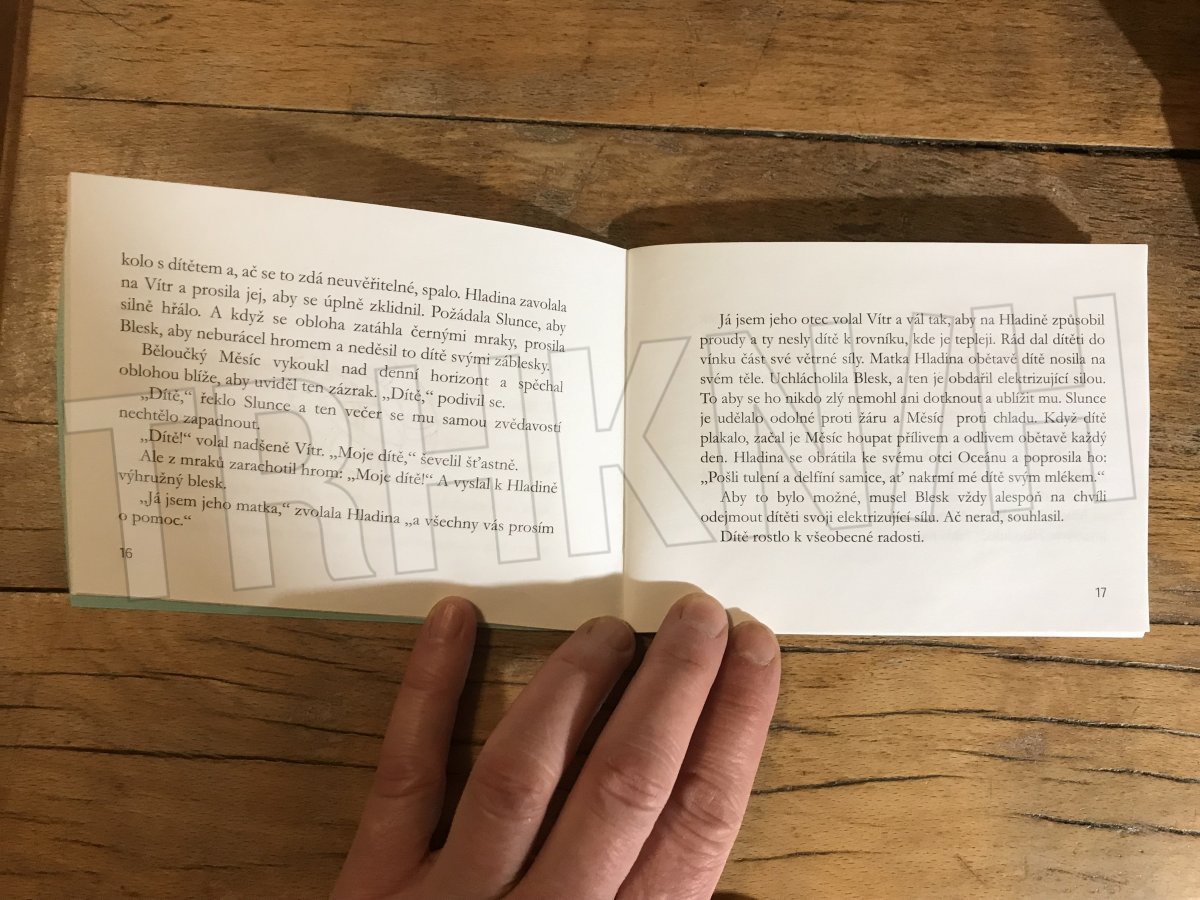 kolo s dítětem a, ač se to zdá neuvěřitelné, spalo. Hladina zavolala
na Vítr a prosila jej, aby se úplně zklidnil. Požádala Slunce, aby
silně hřálo. A když se obloha zatáhla černými mraky, prosila
Blesk, aby neburácel hromem a neděsil to dítě svými záblesky.
Běloučký Měsíc vykoukl nad denní horizont a spěchal
oblohou blíže, aby uviděl ten zázrak. „Dítě,“ podivil se.
„Dítě,“ řeklo Slunce a ten večer se mu samou zvědavostí
nechtělo zapadnout.
„Dítě!“ volal nadšeně Vítr. „Moje dítě,“ ševelil šťastně.
Ale z mraků zarachotil hrom: „Moje dítě!“ A vyslal k Hladině
výhružný blesk.
„Já jsem jeho matka,“ zvolala Hladina „a všechny vás prosím
o pomoc.“
16
Já jsem jeho otec volal Vítr a vál tak, aby na Hladině způsobil
proudy a ty nesly dítě k rovníku, kde je tepleji. Rád dal dítěti do
vínku část své větrné síly. Matka Hladina obětavě dítě nosila na
svém těle. Uchlácholila Blesk, a ten je obdařil elektrizující silou.
To aby se ho nikdo zlý nemohl ani dotknout a ublížit mu. Slunce
je udělalo odolné proti žáru a Měsíc proti chladu. Když dítě
plakalo, začal je Měsíc houpat přílivem a odlivem obětavě každý
den. Hladina se obrátila ke svému otci Oceánu a poprosila ho:
„Pošli tulení a delfíní samice, ať nakrmí mé dítě svým mlékem.“
Aby to bylo možné, musel Blesk vždy alespoň na chvíli
odejmout dítěti svoji elektrizující sílu. Ač nerad, souhlasil.
Dítě rostlo k všeobecné radosti.
17
TRHKNIH